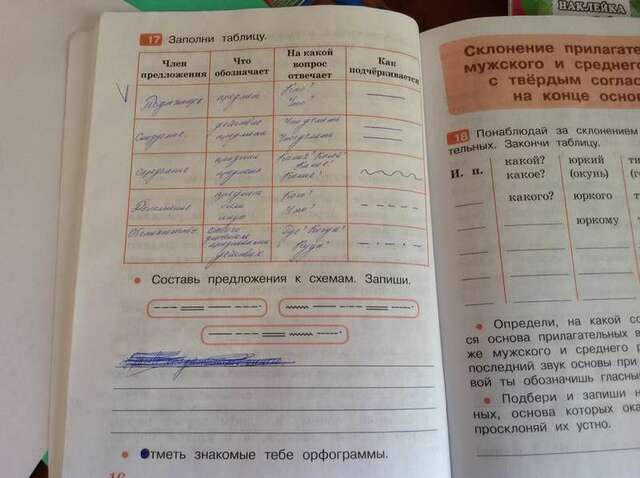 НАКЛЕЙКА
17 Заполни таблицу.
Член предложения
Что обозначает
На какой вопрос отвечает
Как подчёркивается
Подлежащее
предмет
Кто?
Что?
Сказуемое
действие
предмета
Что делать
Что сделать
Определение
признак
предмета
Какая? Какой?
Какое?
Какие?
Дополнение
предмет
Кого?
Чего?
Обстоятельство
действия
Где? Когда?
Куда?
• Составь предложения к схемам. Запиши.
• Отметь знакомые тебе орфограммы.
16
Склонение прилагате
мужского и среднего
с твёрдым соглас
на конце осно
18 Понаблюдай за склонением
тельных. Закончи таблицу.
И. п.
какой?
какое?
юркий
(окунь)
какого?
юркого
юркому
• Определи, на какой со
ся основа прилагательных в
же мужского и среднего р
последний звук основы при
вой ты обозначишь гласны
• Подбери и запиши н
ных, основа которых ока
просклоняй их устно.